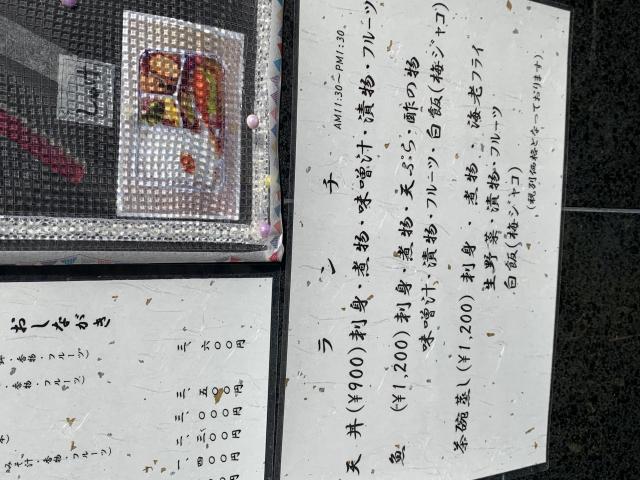 ランチ AM11:30〜PM1:30
天丼(¥900)刺身・煮物・味噌汁・漬物・フルーツ
魚(¥1,200)刺身・煮物・天ぷら・酢の物
味噌汁・漬物・フルーツ・白飯(梅ジャコ)
茶碗蒸し(¥1,200)刺身・煮物・海老フライ
生野菜・漬物・フルーツ
白飯(梅ジャコ)
(税別価格となっております)
おしながき
・香物・フルーツ)
三、六〇〇円
・香物・フルーツ)
三、五〇〇円
三、〇〇〇円
二、三〇〇円
みそ汁・香物・フルーツ)
一、四〇〇円